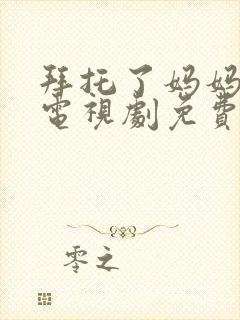 拜托了妈妈
電視劇免費
零之